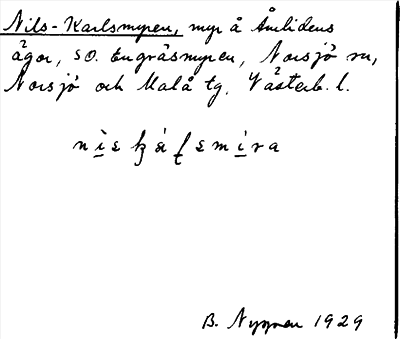 Nils-Karlsmyren, myr å Åmlidens
ägor, SO. Engräsmyren, Norsjö sn,
Norsjö och Malå tg, Västerb. l.
B. Nygren 1929